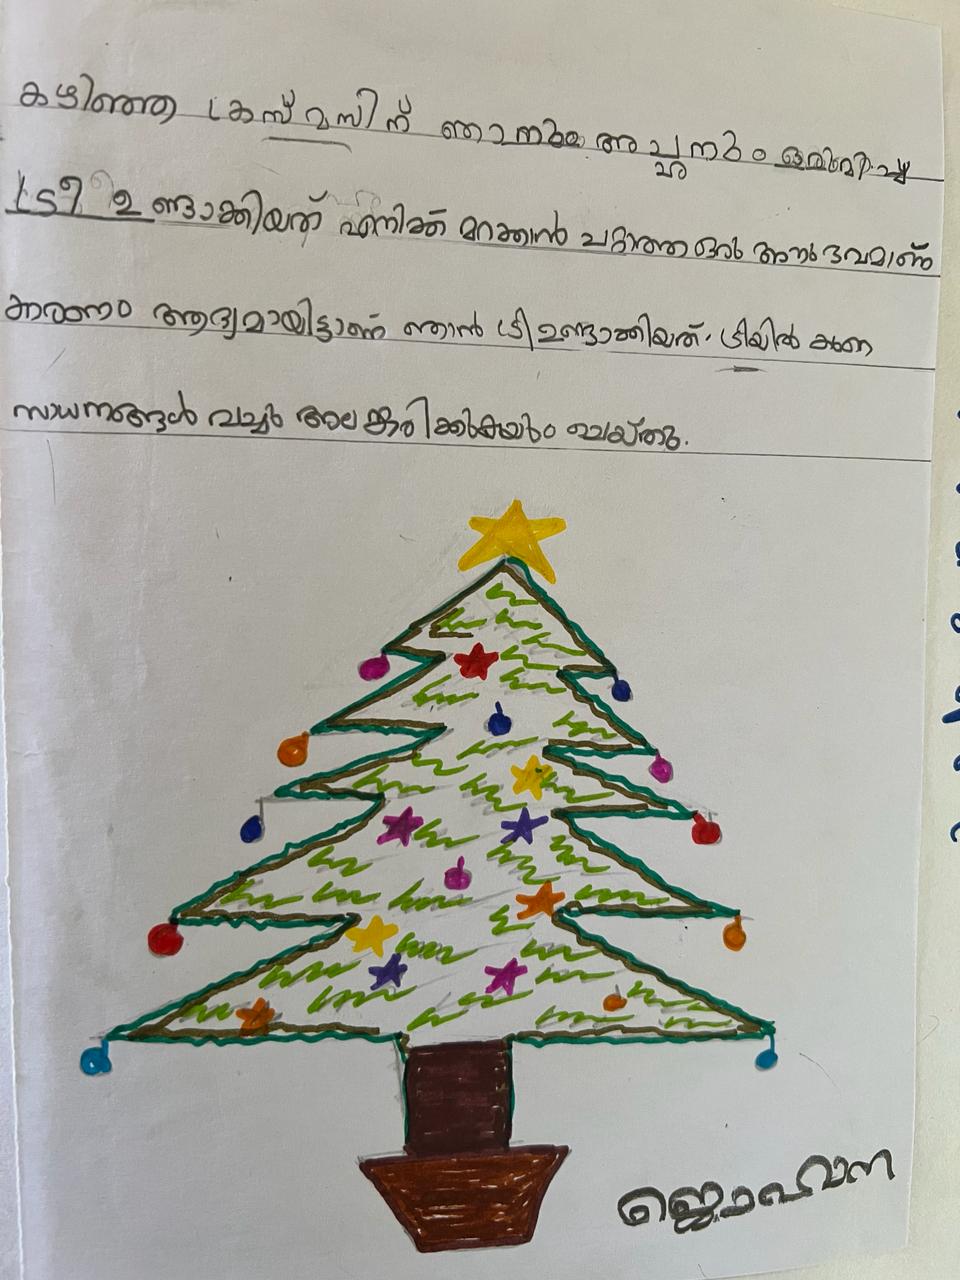 കഴിഞ്ഞ ക്രസ്മസിന് ഞാനും അച്ചനും ഒരുമിച്ച്
ട്രീ ഉണ്ടാക്കിയത് എനിക്ക് മറക്കാൻ പറ്റാത്ത ഒരു അനുഭവമാണ്
കാരണം ആദ്യമായിട്ടാണ് ഞാൻ ട്രീ ഉണ്ടാക്കിയത്. ട്രീയിൽ കുറെ
സാധനങ്ങൾ വച്ചു അലങ്കരിക്കുകയും ചെയ്തു.